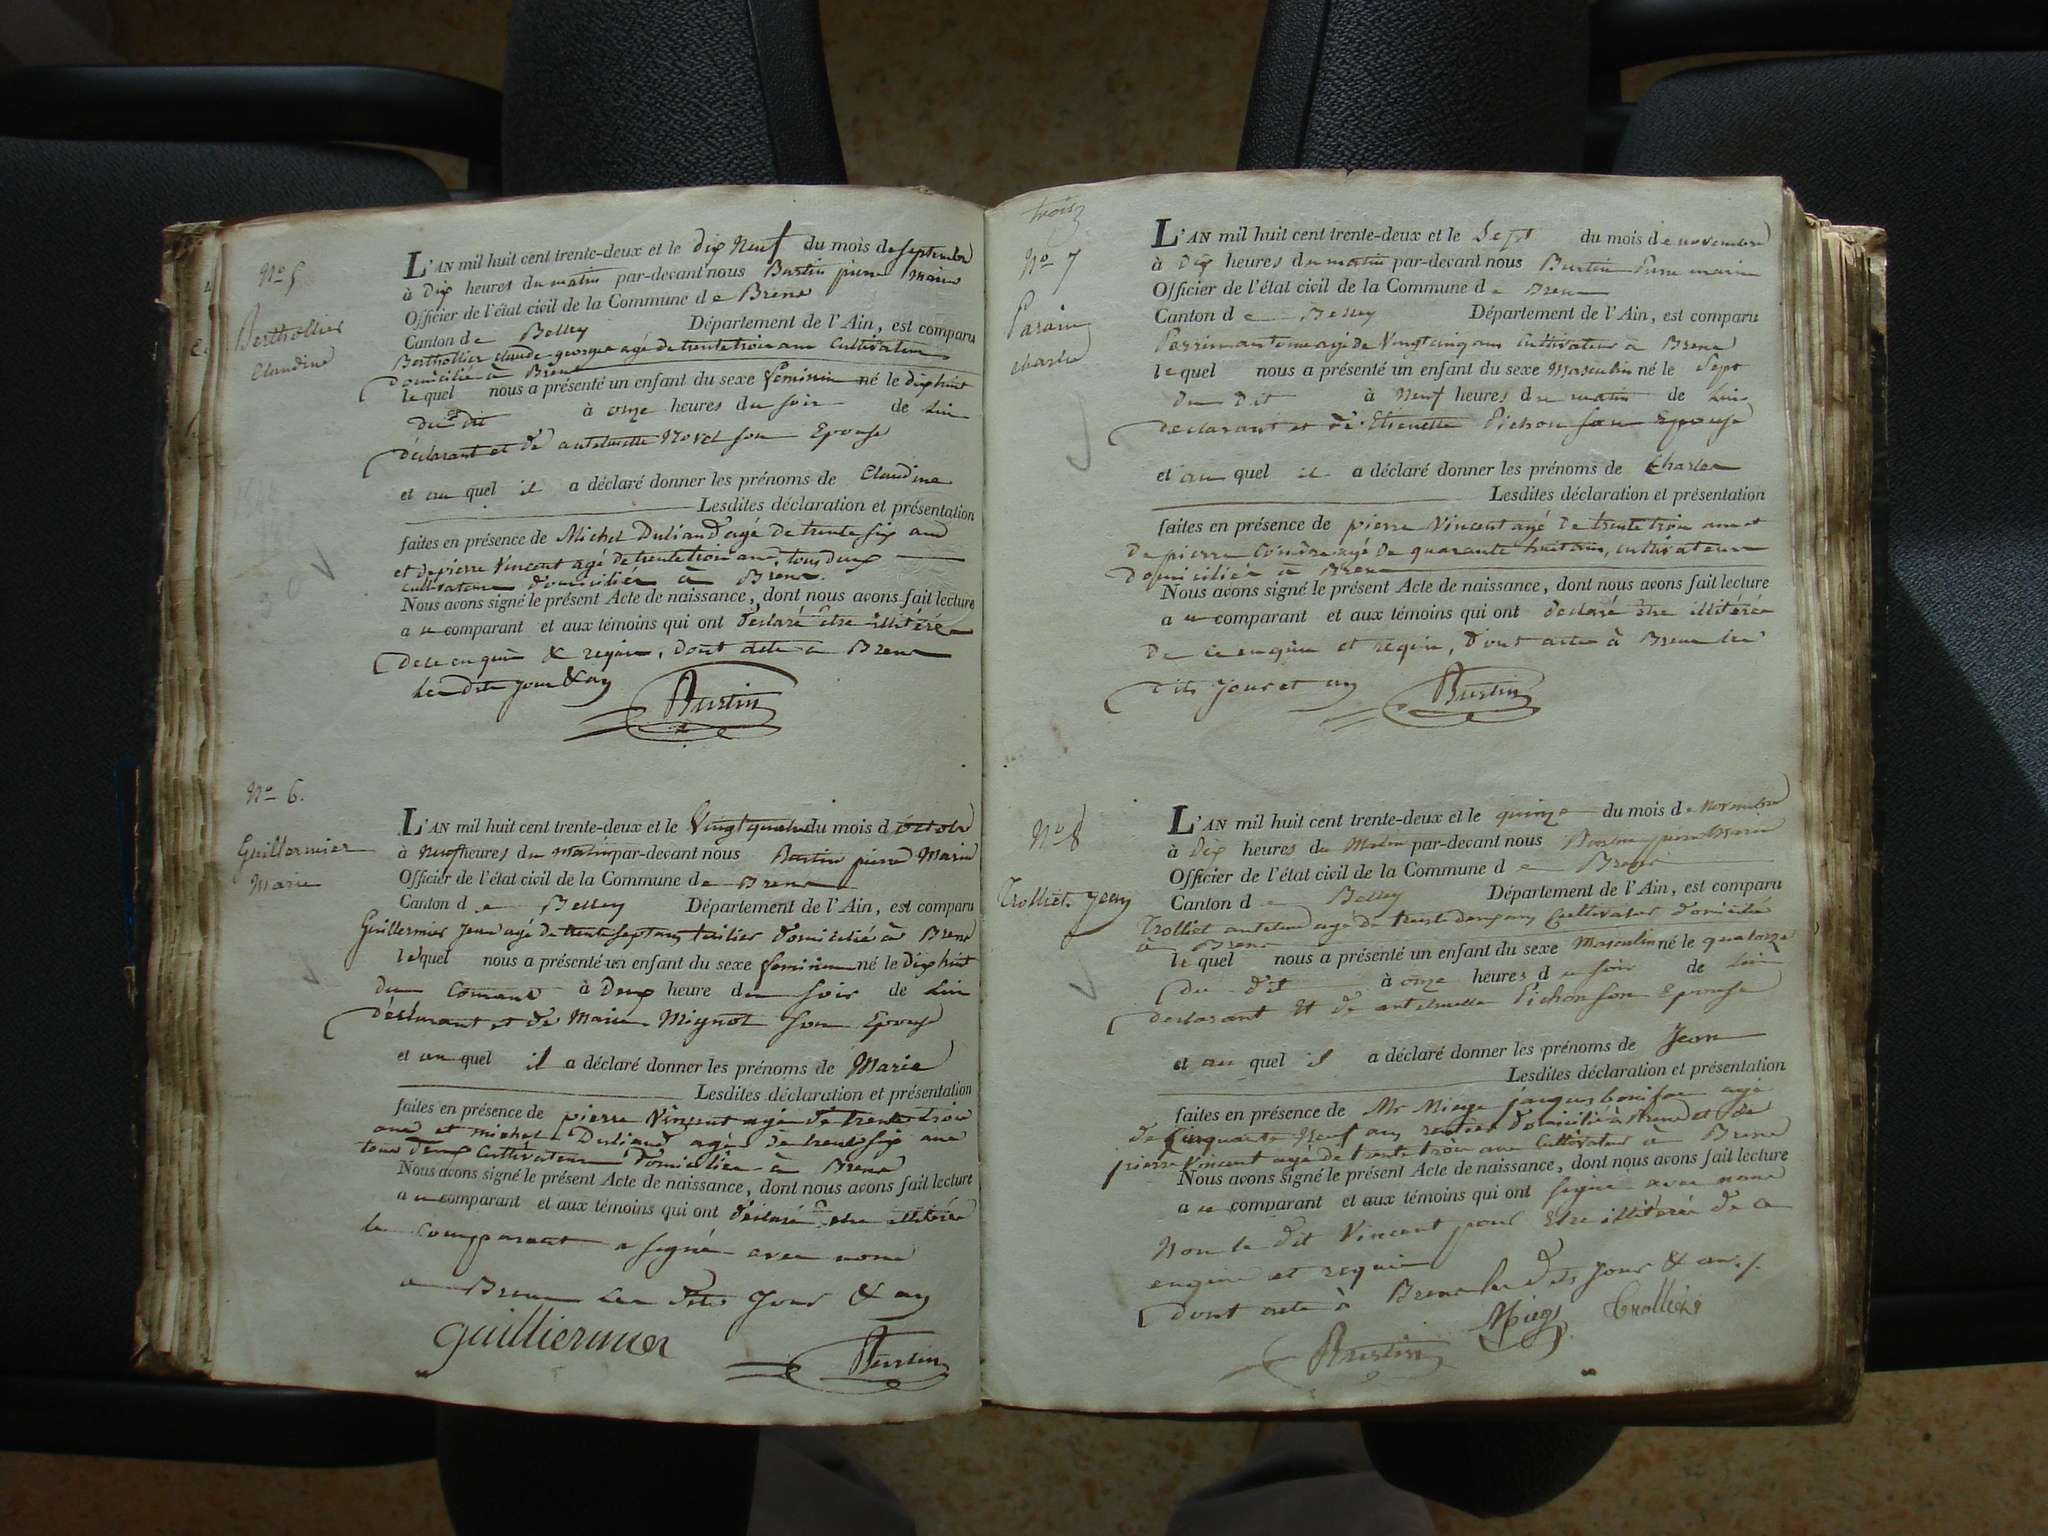 No 5
Berthollier
Claudine
L'AN mil huit cent trente-deux et le dix neuf du mois de septembre
à dix heures du matin par-devant nous Burtin pierre Marie
Officier de l'état civil de la Commune de Brens
Canton de Belley Département de l'Ain, est comparu
Berthollier claude georges agé de trente trois ans Cultivateur
domicilié à Brens
lequel nous a présenté un enfant du sexe feminin né le dix huit
du dit à onze heures du soir de lui
déclarant et de antelmette Morel son Epouse
et au quel il a déclaré donner les prénoms de Claudine
Lesdites déclaration et présentation
faites en présence de Michel Duliand agé de trente six ans
et de pierre Vincent agé de trente trois ans, tous deux
cultivateurs domiciliés à Brens.
Nous avons signé le présent Acte de naissance, dont nous avons fait lecture
au comparant et aux témoins qui ont déclaré être illitérés
de ce enquis & requis, dont acte à Brens
les dits jour & an
Burtin
No 6.
Guillermier
Marie
L'AN mil huit cent trente-deux et le Vingt quatre du mois d octobre
à Neuf heures du matin par-devant nous Burtin pierre Marie
Officier de l'état civil de la Commune de Brens
Canton de Belley Département de l'Ain, est comparu
Guillermier Jean agé de trente sept ans tuilier domicilié à Brens
lequel nous a présenté un enfant du sexe feminin né le Dix huit
du Courant à Deux heure du soir de lui
déclarant et de Marie Mignot son Epouse
et au quel il a déclaré donner les prénoms de Marie
Lesdites déclaration et présentation
faites en présence de pierre Vincent agé de trente trois
ans et michel Duliand agé de trente six ans
tous deux Cultivateurs domiciliés à Brens
Nous avons signé le présent Acte de naissance, dont nous avons fait lecture
au comparant et aux témoins qui ont déclaré être illitérés
le comparant a signé avec nous
a Brens les dits jour & an
Guilliermier
Burtin
trois
No 7
Parain
charle
L'AN mil huit cent trente-deux et le Sept du mois de novembre
à dix heures du matin par-devant nous Burtin Pierre marie
Officier de l'état civil de la Commune de Brens
Canton de Belley Département de l'Ain, est comparu
Perrin antoine agé de Vingt cinq ans Cultivateur à Brens
lequel nous a présenté un enfant du sexe Masculin né le Sept
du dit à Neuf heures du matin de lui
déclarant et de Etienette Pichon son Epouse
et au quel il a déclaré donner les prénoms de Charles
Lesdites déclaration et présentation
faites en présence de pierre Vincent agé de trente trois ans et
de pierre agé de quarante huit ans, cultivateurs
domiciliés à Brens
Nous avons signé le présent Acte de naissance, dont nous avons fait lecture
au comparant et aux témoins qui ont déclaré être illitérés
De ce enquis et requis, dont acte à Brens les
dits jour et an
Burtin
No 8
Trolliet Jean
L'AN mil huit cent trente-deux et le quinze du mois de Novembre
à dix heures du Matin par-devant nous Burtin pierre Marie
Officier de l'état civil de la Commune de Brens
Canton de Belley Département de l'Ain, est comparu
Trolliet antelme agé de trente deux ans Cultivateur domicilié
à Brens
lequel nous a présenté un enfant du sexe Masculin né le quatorze
du dit à onze heures du soir de lui
déclarant et de antelmette Pichon son Epouse
et au quel il a déclaré donner les prénoms de Jean
Lesdites déclaration et présentation
faites en présence de Mr Miege jacques boniface agé
de Cinquante Neuf ans rentier domicilié à Brens et de
pierre Vincent agé de trente trois ans Cultivateur à Brens
Nous avons signé le présent Acte de naissance, dont nous avons fait lecture
au comparant et aux témoins qui ont signé avec nous
Non le dit Vincent pour Etre illitérée de ce
enquis et requis
dont acte à Brens les dits jour & an./.
Miege Trolliet
Burtin